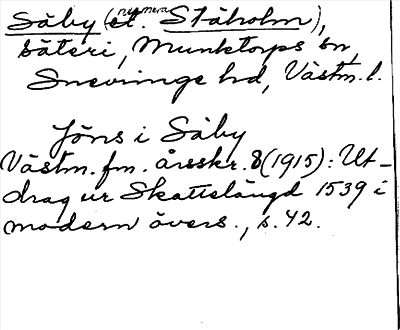 Säby (numera Stäholm),
säteri, Munktorps sn,
Snevringe hd, Västm. l.
Jöns i Säby
Västm. fm. årsskr. 8 (1915): Ut-
drag ur Skattelängd 1539 i
modern övers., s. 42.